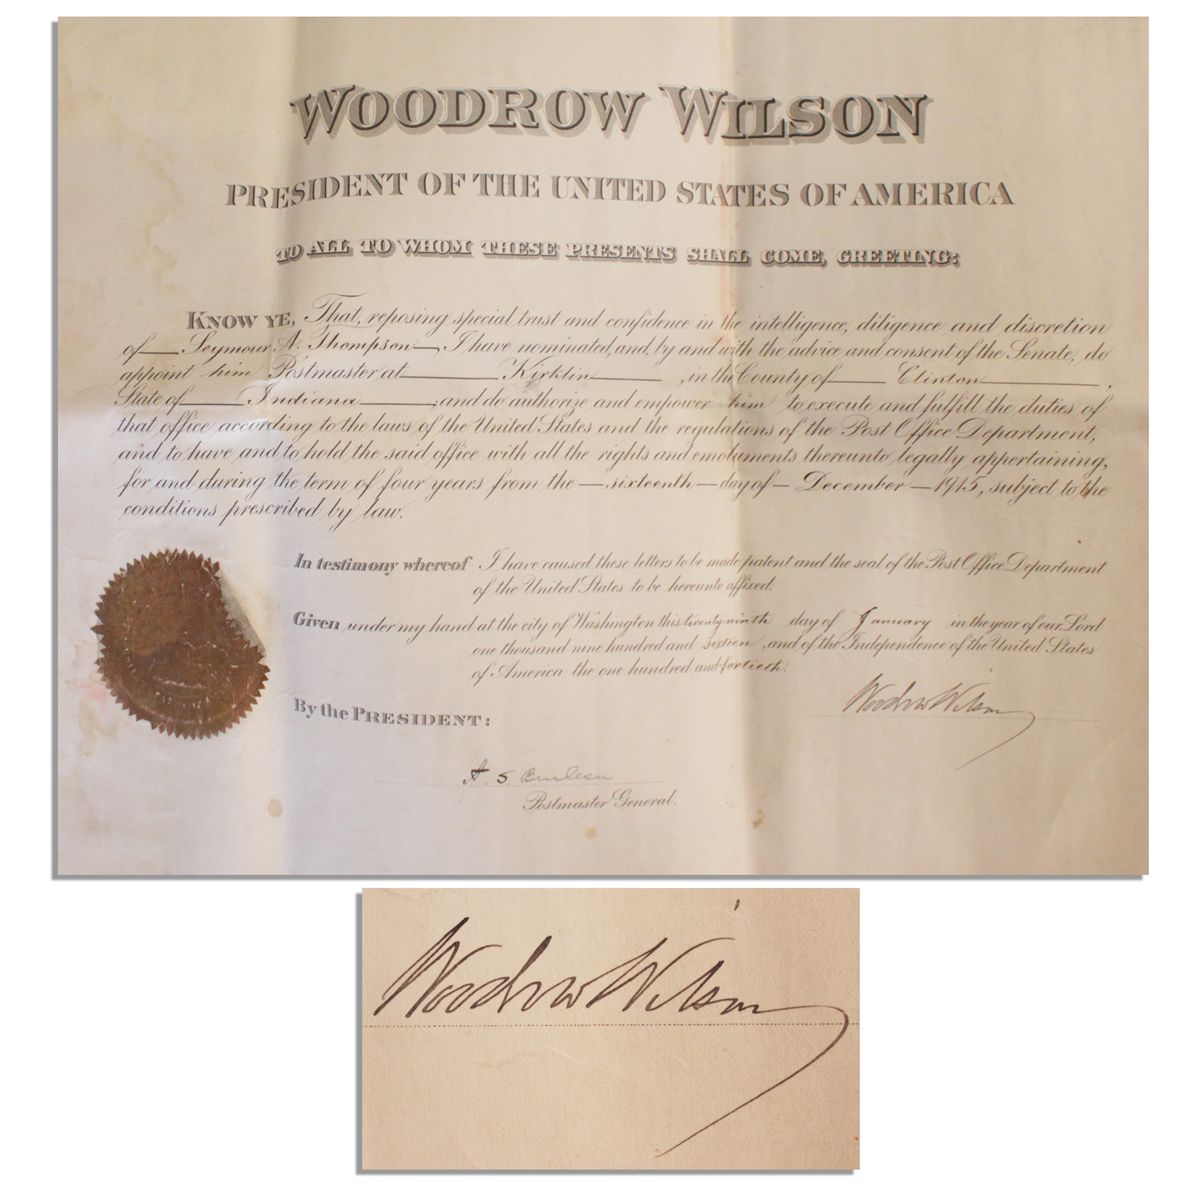 WOODROW WILSON
PRESIDENT OF THE UNITED STATES OF AMERICA
TO ALL TO WHOM THESE PRESENTS SHALL COME, GREETING:
KNOW YE, That, reposing special trust and confidence in the intelligence, diligence and discretion
of Seymour A. Thompson, I have nominated, and, by and with the advice and consent of the Senate, do
appoint him Postmaster at Kirklin, in the County of Clinton,
State of Indiana; and do authorize and empower him to execute and fulfill the duties of
that office according to the laws of the United States and the regulations of the Post Office Department,
and to have and to hold the said office with all the rights and emoluments thereunto legally appertaining,
for and during the term of four years from the sixteenth day of December 1915, subject to the
conditions prescribed by law.
In testimony whereof I have caused these letters to be made patent and the seal of the Post Office Department
of the United States to be hereunto affixed.
Given under my hand at the city of Washington this twenty-ninth day of January in the year of our Lord
one thousand nine hundred and sixteen, and of the Independence of the United States
of America the one hundred and fortieth.
Woodrow Wilson
By the PRESIDENT:
A. S. Burleson
Postmaster General.
Woodrow Wilson